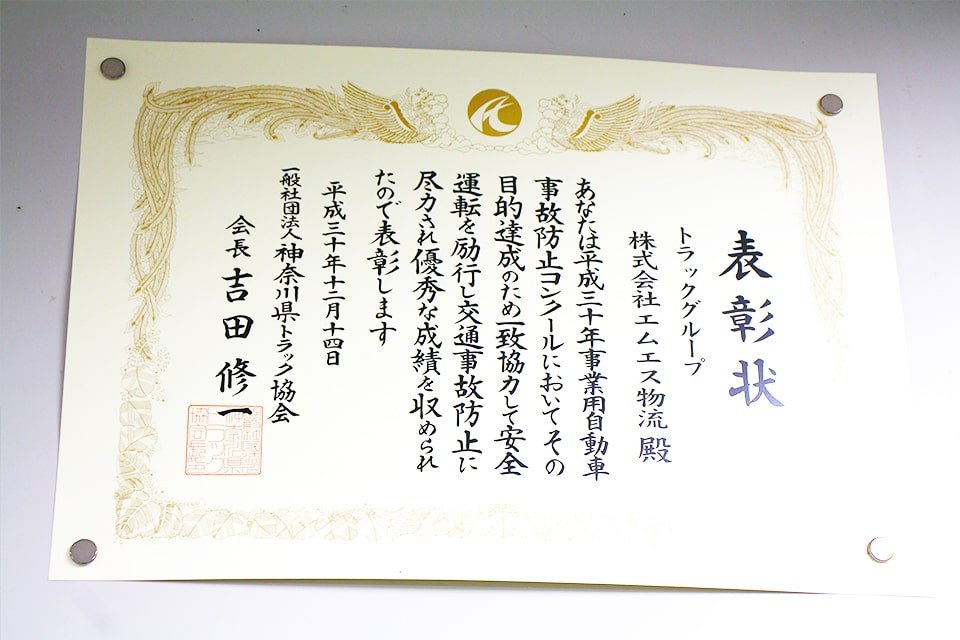 表彰状
トラックグループ
株式会社エムエス物流 殿
あなたは平成三十年事業用自動車
事故防止コンクールにおいてその
目的達成のため一致協力して安全
運転を励行し交通事故防止に
尽力され優秀な成績を収められ
たので表彰します
平成三十年十二月十四日
一般社団法人神奈川県トラック協会
会長 吉田修一